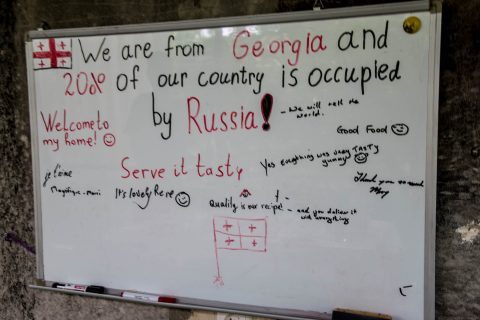 We are from Georgia and
20% of our country is occupied
by Russia!
- We will tell the
world.
Welcome to
my home!
Good Food
Serve it tasty
Yes everything was very TASTY
yummy
je t'aime
It's lovely here
Thank you so much
Quality is our recipe!
- and you deliver it
with everything